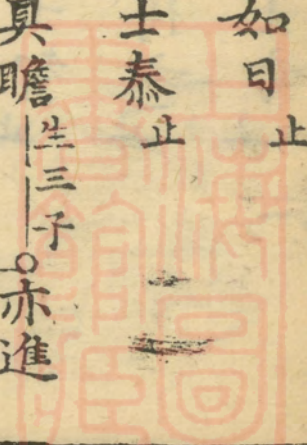 如日止
士泰止
真瞻生三子○亦進